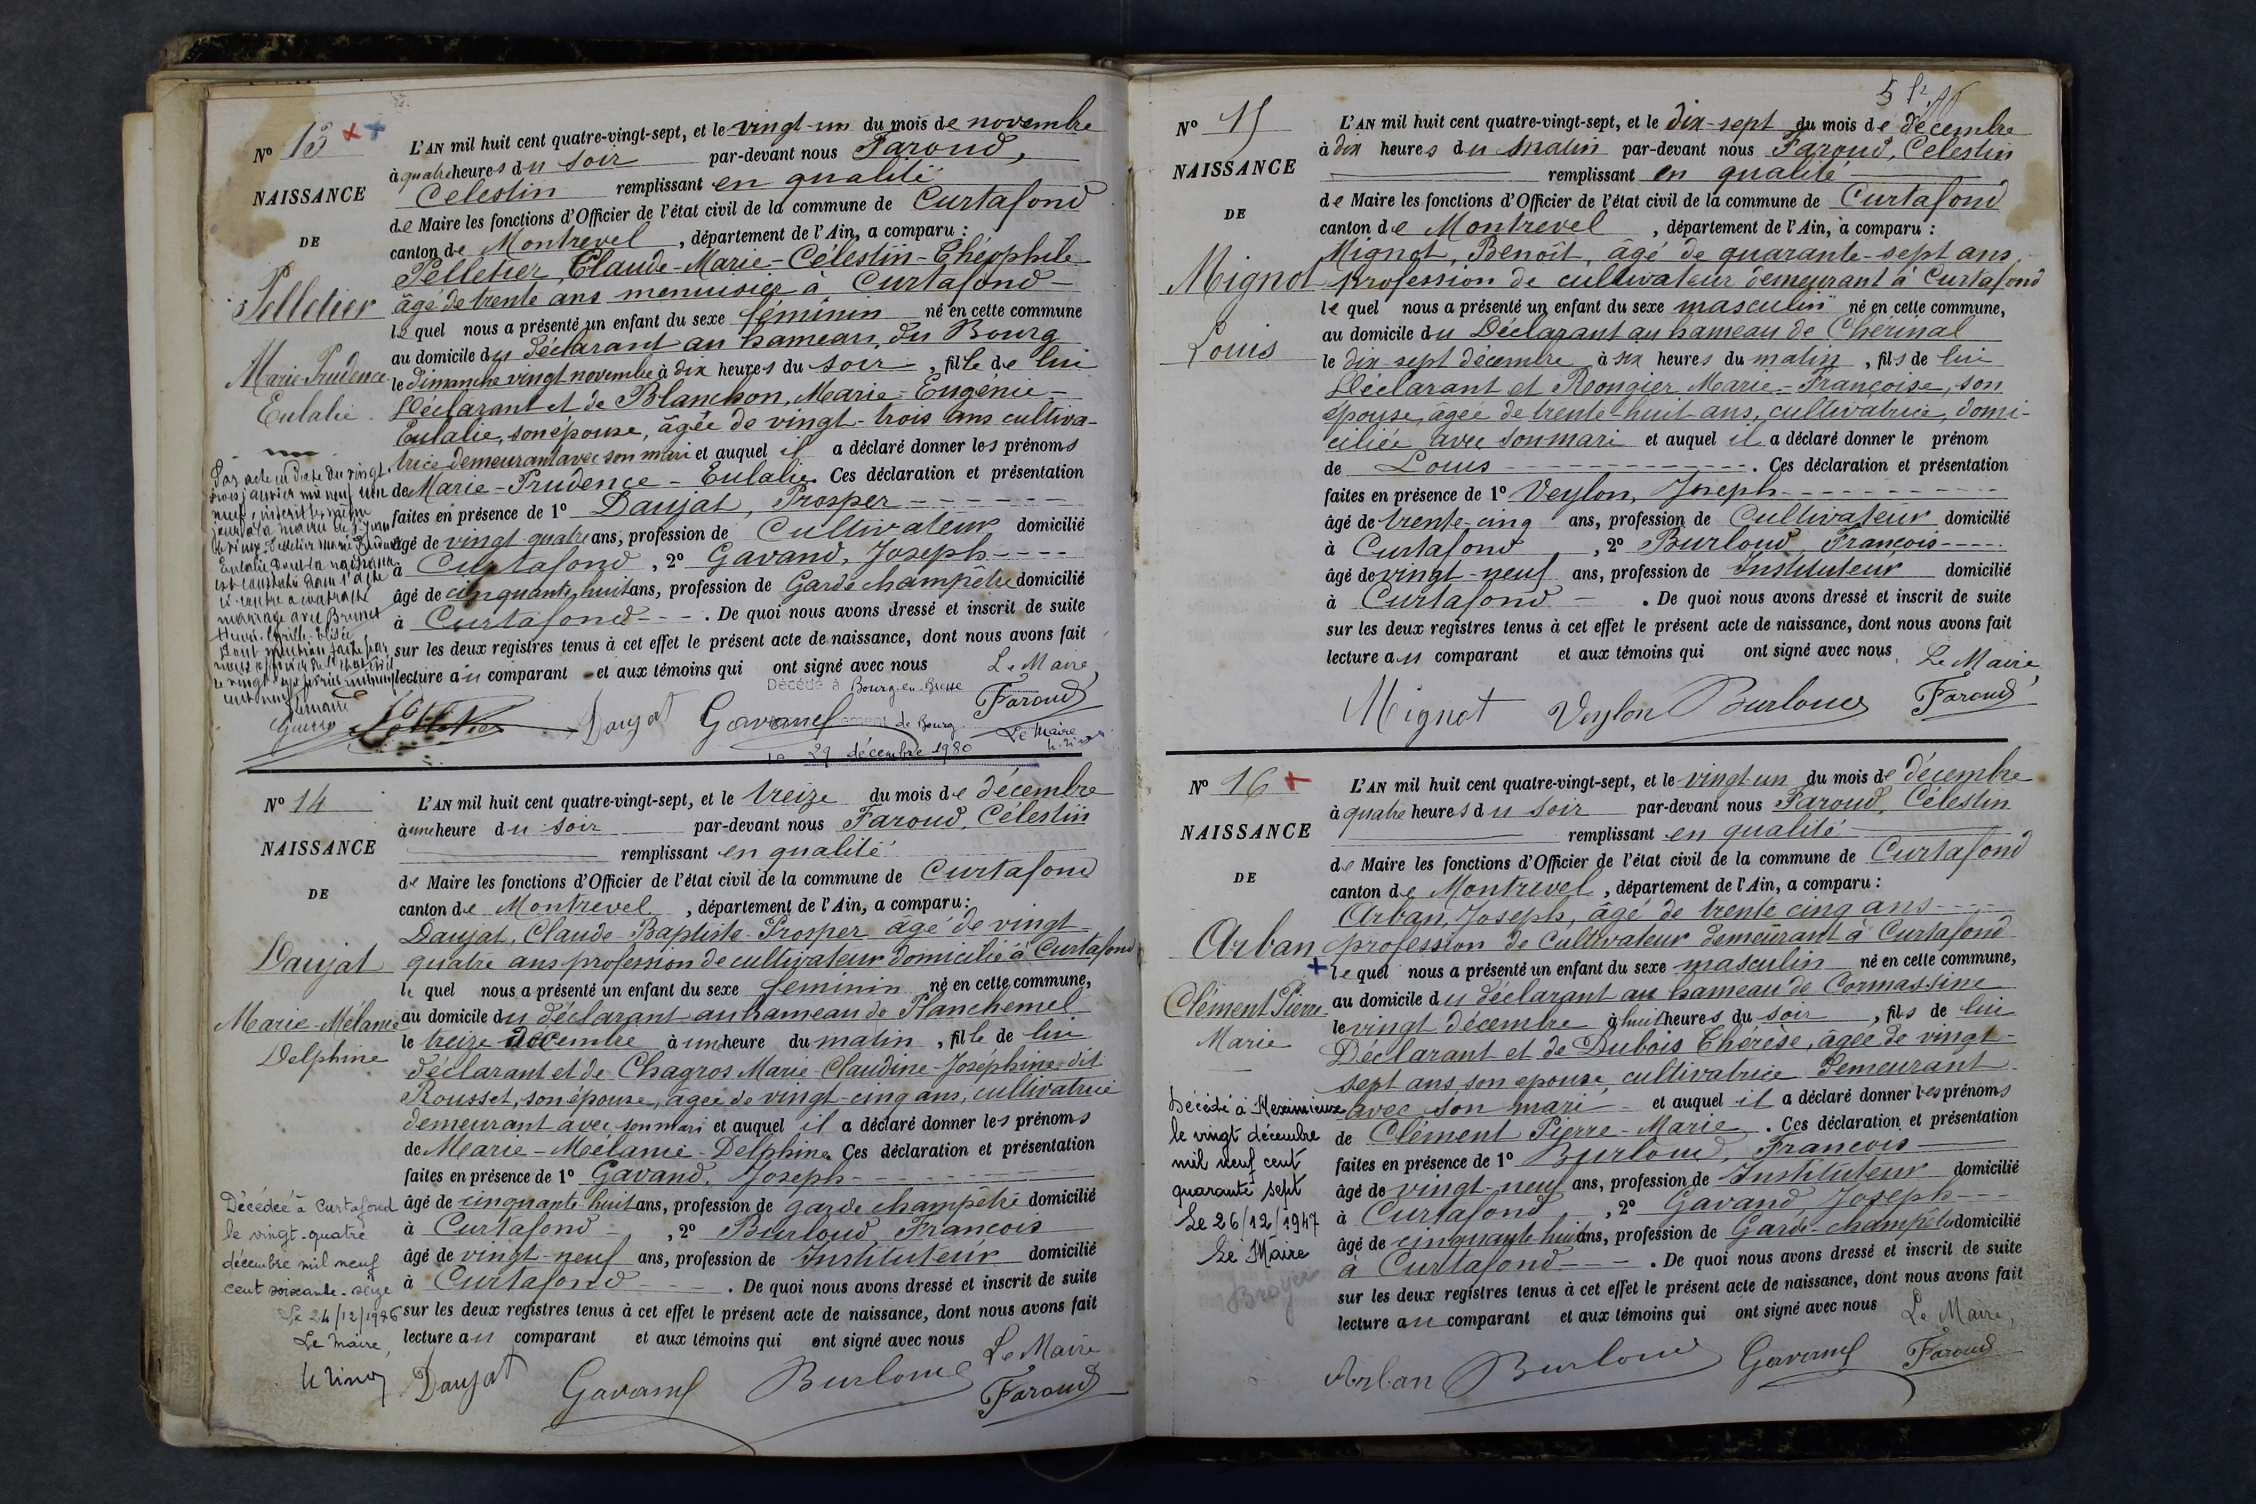 Nº 13
NAISSANCE
DE
Pelletier
Marie Prudence
Eulalie
L'AN mil huit cent quatre-vingt-sept, et le vingt-un du mois de novembre
à quatre heures du soir par-devant nous Faroud,
Celestin remplissant en qualité
de Maire les fonctions d'Officier de l'état civil de la commune de Curtafond
canton de Montrevel, département de l'Ain, a comparu :
Pelletier, Claude-Marie-Célestin-Théophile
âgé de trente ans menuisier à Curtafond
le quel nous a présenté un enfant du sexe féminin né en cette commune
au domicile du déclarant au hameau du Bourg
le dimanche vingt novembre à dix heures du soir, fille de lui
Déclarant et de Blanchon, Marie-Eugenie-
Eulalie, son épouse, âgée de vingt-trois ans cultiva-
trice demeurant avec son mari et auquel il a déclaré donner les prénoms
de Marie-Prudence-Eulalie. Ces déclaration et présentation
faites en présence de 1º Daujat, Prosper
âgé de vingt-quatre ans, profession de Cultivateur domicilié
à Curtafond, 2º Gavand, Joseph
âgé de cinquante huit ans, profession de Garde champêtre domicilié
à Curtafond. De quoi nous avons dressé et inscrit de suite
sur les deux registres tenus à cet effet le présent acte de naissance, dont nous avons fait
lecture au comparant et aux témoins qui ont signé avec nous
Le Maire
Par acte en date du vingt
trois janvier mil neuf cent
neuf, inscrit le même
jour à la mairie de St Jean
le Vieux, Pelletier Marie Prudence
Eulalie dont la naissance
est constatée dans l'acte
ci-contre a contracté
mariage avec Brunet
Henri-Cyrille-Elisée
Dont mention faite par
le vingt six février mil neuf
cent neuf
Le maire
Décédé à Bourg-en-Bresse
de Bourg
Le 29 décembre 1980
Le Maire
Daujat Gavand Faroud
Nº 14
NAISSANCE
DE
Daujat
Marie-Mélanie
Delphine
L'AN mil huit cent quatre-vingt-sept, et le treize du mois de décembre
à une heure du soir par-devant nous Faroud, Célestin
remplissant en qualité
de Maire les fonctions d'Officier de l'état civil de la commune de Curtafond
canton de Montrevel, département de l'Ain, a comparu :
Daujat, Claude-Baptiste-Prosper âgé de vingt-
quatre ans profession de cultivateur domicilié à Curtafond
le quel nous a présenté un enfant du sexe feminin né en cette commune,
au domicile du déclarant au hameau de Planchemel
le treize décembre à une heure du matin, fille de lui
déclarant et de Chagros Marie-Claudine-Joséphine dit
Rousset, son épouse, âgée de vingt-cinq ans, cultivatrice
demeurant avec son mari et auquel il a déclaré donner les prénoms
de Marie-Mélanie-Delphine. Ces déclaration et présentation
faites en présence de 1º Gavand, Joseph
âgé de cinquante-huit ans, profession de garde champêtre domicilié
à Curtafond, 2º Burloud, Francois
âgé de vingt-neuf ans, profession de Instituteur domicilié
à Curtafond. De quoi nous avons dressé et inscrit de suite
sur les deux registres tenus à cet effet le présent acte de naissance, dont nous avons fait
lecture au comparant et aux témoins qui ont signé avec nous
Le Maire
Décédée à Curtafond
le vingt-quatre
décembre mil neuf
cent soixante-seize
Le Maire,
Daujat Gavand Burloud Faroud
Nº 15
NAISSANCE
DE
Mignot
Louis
L'AN mil huit cent quatre-vingt-sept, et le dix-sept du mois de décembre
à dix heures du matin par-devant nous Faroud, Célestin
remplissant en qualité
de Maire les fonctions d'Officier de l'état civil de la commune de Curtafond
canton de Montrevel, département de l'Ain, a comparu :
Mignot, Benoît, âgé de quarante-sept ans
profession de cultivateur demeurant à Curtafond
le quel nous a présenté un enfant du sexe masculin né en cette commune,
au domicile du Déclarant au hameau de Chérinal
le dix sept décembre à six heures du matin, fils de lui
Déclarant et Rongier Marie-Françoise, son
épouse, âgée de trente-huit ans, cultivatrice, domi-
ciliée avec son mari et auquel il a déclaré donner le prénom
de Louis. Ces déclaration et présentation
faites en présence de 1º Veylon, Joseph
âgé de trente-cinq ans, profession de Cultivateur domicilié
à Curtafond, 2º Burloud, François
âgé de vingt-neuf ans, profession de Instituteur domicilié
à Curtafond. De quoi nous avons dressé et inscrit de suite
sur les deux registres tenus à cet effet le présent acte de naissance, dont nous avons fait
lecture au comparant et aux témoins qui ont signé avec nous
Le Maire
Mignot Veylon Burloud Faroud
Nº 16
NAISSANCE
DE
Arban
Clément Pierre
Marie
L'AN mil huit cent quatre-vingt-sept, et le vingt-un du mois de décembre
à quatre heures du soir par-devant nous Faroud, Célestin
remplissant en qualité
de Maire les fonctions d'Officier de l'état civil de la commune de Curtafond
canton de Montrevel, département de l'Ain, a comparu :
Arban, Joseph, âgé de trente cinq ans
profession de Cultivateur demeurant à Curtafond
le quel nous a présenté un enfant du sexe masculin né en cette commune,
au domicile du déclarant au hameau de Cormassine
le vingt décembre à huit heures du soir, fils de lui
Déclarant et de Dubois Thérèse, âgée de vingt-
sept ans son epouse, cultivatrice demeurant
avec son mari et auquel il a déclaré donner les prénoms
de Clément Pierre-Marie. Ces déclaration et présentation
faites en présence de 1º Burloud, Francois
âgé de vingt-neuf ans, profession de Instituteur domicilié
à Curtafond, 2º Gavand Joseph
âgé de cinquante huit ans, profession de Garde-champêtre domicilié
à Curtafond. De quoi nous avons dressé et inscrit de suite
sur les deux registres tenus à cet effet le présent acte de naissance, dont nous avons fait
lecture au comparant et aux témoins qui ont signé avec nous
Le Maire,
Décédé à Meximieux
le vingt décembre
mil neuf cent
quarante sept
Le 26/12/1947
Le Maire
Broyer
Arban Burloud Gavand Faroud